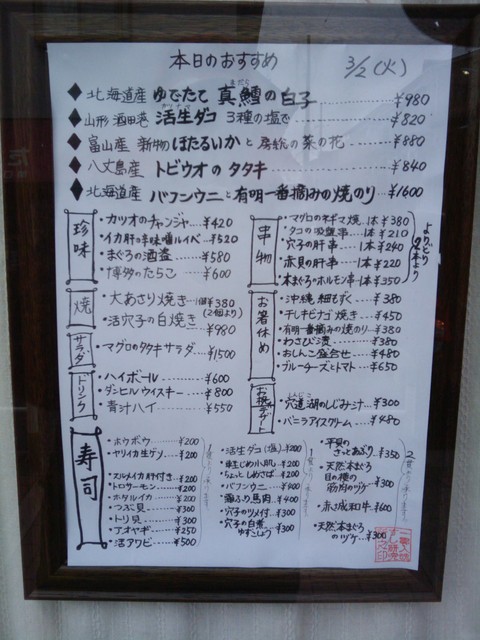 本日のおすすめ 3/2(火)
◆北海道産 ゆでたて 真鱈の白子 ¥980
◆山形 酒田港 活生ダコ 3種の塩で ¥820
◆富山産 新物ほたるいかと房総の菜の花 ¥880
◆八丈島産 トビウオのタタキ ¥840
◆北海道産 バフンウニと有明一番摘みの焼のり ¥1600
珍味
・カツオのチャンジャ ¥420
・イカ肝の辛味噌ルイベ ¥520
・まぐろの酒盗 ¥580
・博多のたらこ ¥600
焼
・大あさり焼き 1個¥380
(2個より)
・活穴子の白焼き ¥980
サラダ
・マグロのタタキサラダ ¥1500
ドリンク
・ハイボール ¥600
・ダンヒルウイスキー ¥800
・青汁ハイ ¥550
串物
・マグロのネギマ焼 1本¥380
・タコの吸盤串 1本¥210
・穴子の肝串 1本¥240
・赤貝の肝串 1本¥220
・本まぐろのホルモン串 1本¥350
よりどり2本より
お箸休め
・沖縄 細もずく ¥380
・干しキビナゴ焼き ¥450
・有明一番摘みの焼のり ¥380
・わさび漬 ¥380
・おしんこ盛合せ ¥480
・ブルーチーズとトマト ¥650
お椀 デザート
・宍道湖のしじみ汁 ¥300
・バニラアイスクリーム ¥480
寿司
・ホウボウ ¥200
・ヤリイカ生ゲソ ¥200
・スルメイカオサ付き ¥200
・トロサーモン ¥200
・ホタルイカ ¥200
・つぶ貝 ¥300
・トリ貝 ¥300
・アオヤギ ¥250
・活アワビ ¥500
・活生ダコ(塩) ¥200
・生じめ小肌 ¥200
・ちょいしめさば ¥200
・バフンウニ ¥400
・霜ふり馬肉 ¥400
・穴子のツメ付 ¥300
・穴子の白煮
ゆずこしょう ¥300
・平貝の
さっとあぶり ¥350
・天然本まぐろ
目の種の
筋肉のヅケ ¥300
・赤城和牛 ¥600
・天然本まぐろ
のヅケ ¥300